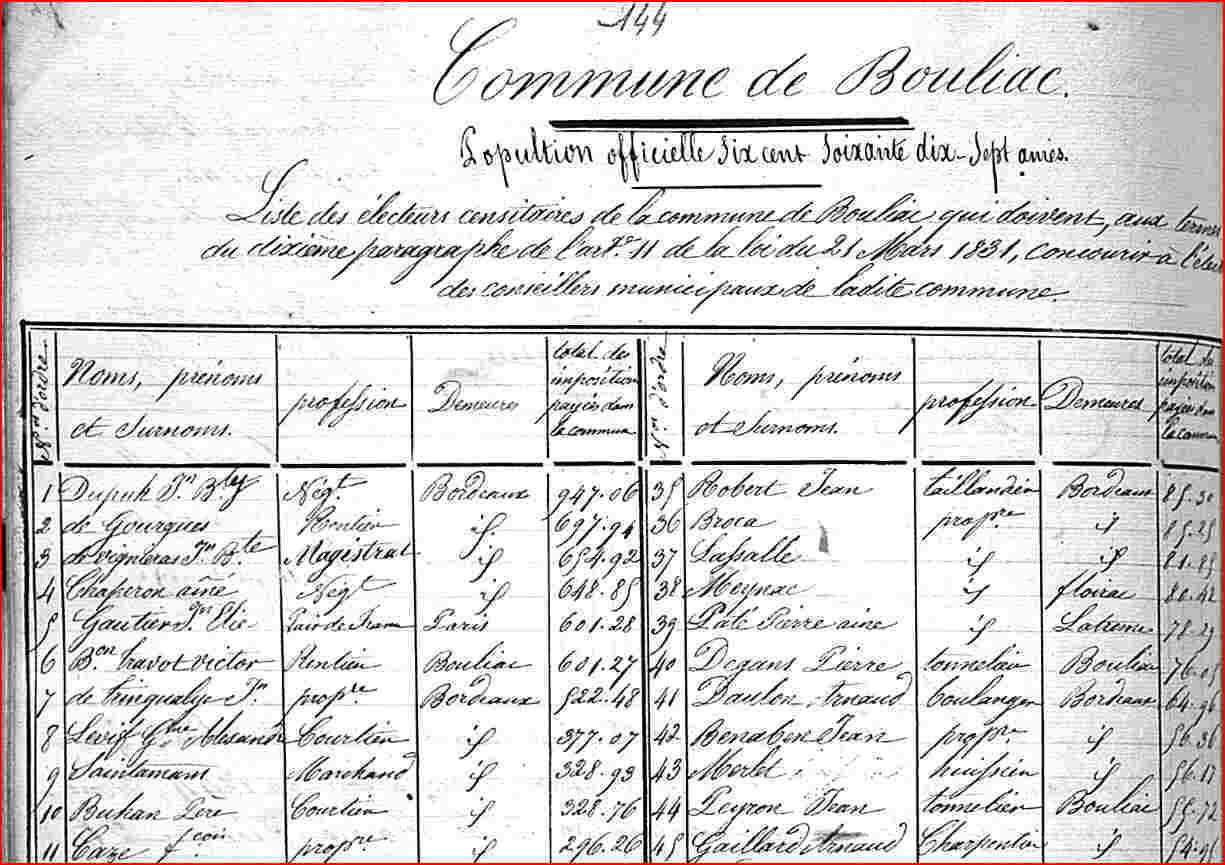 144
Commune de Bouliac.
Popultion officielle Six cent Soixante dix-Sept amies.
Liste des électeurs censitaires de la commune de Bouliac qui doivent, aux termes
du dixième paragraphe de l'art.e 11 de la loi du 21 Mars 1831, concourir à l'élec
des conseillers municipaux de ladite commune.
Nos d'ordre Noms, prénoms et Surnoms. profession Demeures total des imposition payées dans la commune Nos d'ordre Noms, prénoms et Surnoms. profession Demeures total des imposition payées dans la commune
1 Dupuch Jn Bte Négt Bordeaux 947.06 35 Robert Jean taillandier Bordeaux 85.30
2 de Gourgues Rentier id 697.94 36 Broca propre id 85.25
3 de vignieras Jn Bte Magistrat id 654.92 37 Lassalle id id 81.85
4 Chaperon aîné Négt id 648.85 38 Meynac id floirac 80.42
5 Gautier Jn Elie Pair de France Paris 601.28 39 Paté Pierre ainé id Latreme 78.29
6 Bon travot victor Rentier Bouliac 601.27 40 Degans Pierre tonnelier Bouliac 76.05
7 de tringualye Jn propre Bordeaux 522.48 41 Daulon Arnaud boulanger Bordeaux 64.96
8 Alexandre Courtier id 377.07 42 Benaben Jean propre id 56.36
9 Saintamans Marchand id 328.93 43 Merlet huissier id 56.17
10 Buhan Père Courtier id 328.76 44 Peyron Jean tonnelier Bouliac 55.72
11 Caze fçois propre id 296.26 45 Gaillard Arnaud Charpentier id 54.96